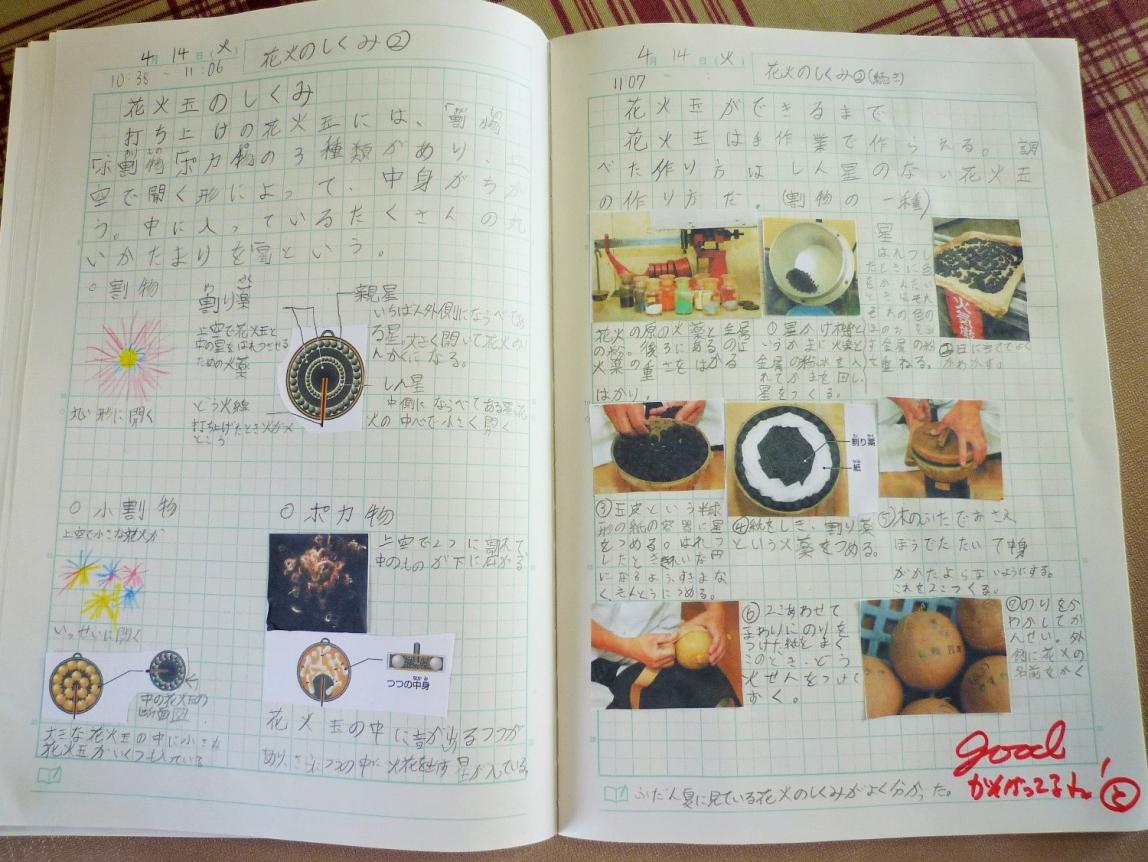 4月14日(火)
花火のしくみ②
10:38 ~ 11:06
花火玉のしくみ
打ち上げの花火玉には、「割物」
「小割物」「ポカ物」の3種類があり、上
空で開く形によって、中身がちが
う。中に入っているたくさんの丸
いかたまりを星という。
○割物
丸い形に開く
わ やく
割り薬
上空で花火玉と
中の星をはれつさせる
ための火薬
どう火線
打ち上げたとき火がつく
ところ
親星
いちばん外側にならべてあ
る星。大きく開いて花火の
になる。
しん星
中側にならべてある星。花
火の中心で小さく開く
○小割物
上空で小さな花火が
いっせいに開く
中の花火玉の
断面図
大きな花火玉の中に小さな
花火玉がいくつも入っている
○ポカ物
上空で2つに割れて
中のものが下に広がる
つつの中身
花火玉の中に音が出るつつが
あり、さらにつつの中に火花を出す星が入っている。
4月14日(火)
花火のしくみ②(続き)
11:07 ~
花火玉ができるまで
花火玉は手作業で作られる。調
べた作り方はしん星のない花火玉
の作り方だ。(割物の一種)
花火の原の火薬と金属
の粉。後ろにあるのは
火薬の重さをはかる
はかり。
①星かけ機と
いうかまに火薬と
金属の粉、水を入
れてかまを回し、
星をつくる。
星
はれつし
たときに色
②日に当ててよく
かわかす。
③玉皮という半球
形の紙の容器に星
をつめる。はれつ
したとききれいな円
になるよう、すきまな
くきんとうにつめる。
④紙をしき、割り薬
という火薬をつめる。
わ やく
割り薬
かみ
紙
⑤木のふたでおさえ
ぼうでたたいて中身
がかたよらないようにする。
これを2こつくる。
⑥2こあわせて
まわりにのりを
つけた紙をまく
このとき、どう
火せんをつけて
おく。
⑦のりをか
わかしてか
んせい。外
側に花火の
名前をかく
ふだん夏に見ている花火のしくみがよく分かった。
good!